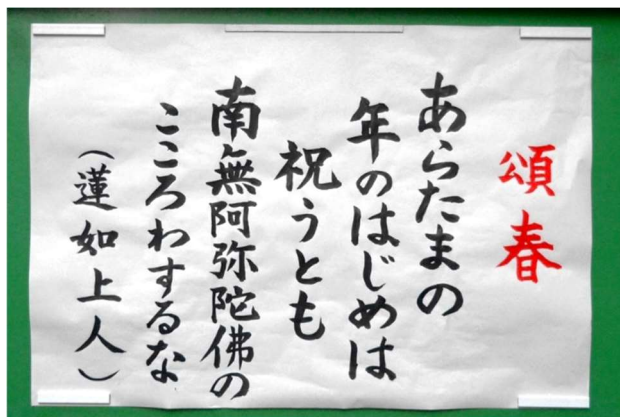 頌春
あらたまの
年のはじめは
祝うとも
南無阿弥陀佛の
こころわするな
（蓮如上人）